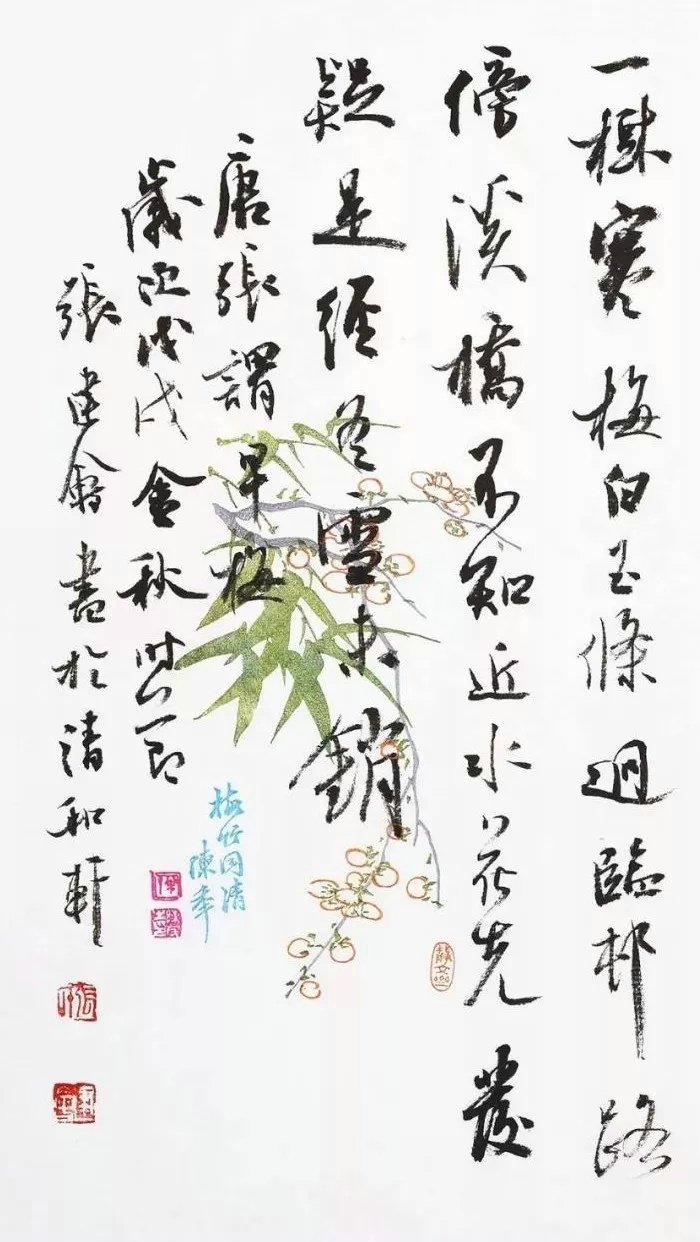 一樹寒梅白玉條迥臨邨路
傍溪橋不知近水花先發
疑是經冬雪未銷
唐張謂早梅
歲次戊戌金秋時節
張建會書於清和軒
梅竹同清
陳年